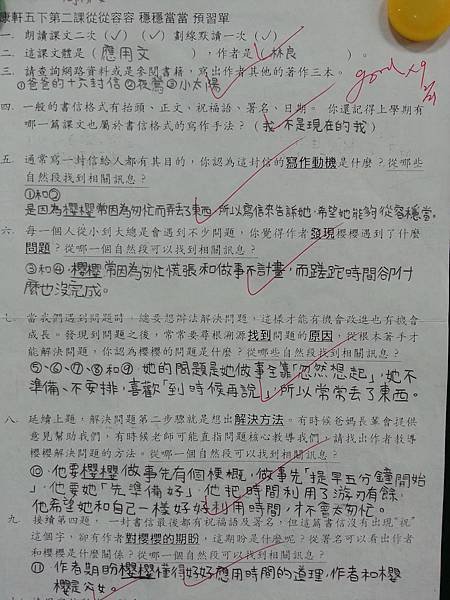 康軒五下第二課從從容容 穩穩當當 預習單
一. 朗讀課文二次(✓)(✓) 劃線默讀一次(✓)
二. 這課文體是( 應用文 ), 作者是( 林良 )。
三. 請查詢網路資料或是參閱書籍, 寫出作者其他的著作三本。
①爸爸的十六封信②夜鶯③小太陽
good x9
四. 一般的書信格式有抬頭、正文、祝福語、署名、日期。 你還記得上學期有
哪一篇課文也屬於書信格式的寫作手法?(我不是現在的我)
五. 通常寫一封信給人都有其目的, 你認為這封信的寫作動機是什麼?從哪些
自然段找到相關訊息?
①和②
是因為櫻櫻常因為匆忙而弄丟了東西, 所以寫信來告訴她, 希望她能夠從容穩當。
六. 每一個人從小到大總是會遇到不少問題, 你覺得作者發現櫻櫻遇到了什麼
問題?從哪一個自然段可以找到相關訊息?
③和④, 櫻櫻常因為匆忙慌張和做事不計畫, 而蹉跎時間卻什
麼也沒完成。
七. 當我們遇到問題時, 總要想辦法解決問題, 這樣才能有機會改進也有機會
成長。發現到問題之後, 常常要尋根溯源找到問題的原因, 從根本著手才
能解決問題, 你認為櫻櫻的問題是什麼?從哪些自然段找到相關訊息?
⑤、⑥、⑦、⑧和⑨ 她的問題是她做事全靠「忽然想起」, 她不
準備、不安排, 喜歡「到時候再說」, 所以常常丟了東西。
八. 延續上題, 解決問題第二步驟就是想出解決方法。有時候爸媽長輩會提供
意見幫助我們, 有時候老師可能直指問題核心教導我們, 請找出作者教導
櫻櫻解決問題的方法。從哪一個自然段可以找到相關訊息?
⑩, 他要櫻櫻做事先有個梗概, 做事先「提早五分鐘開始
」, 他要她「先準備好」, 他把時間利用了游刃有餘,
他希望她和自己一樣好好利用時間, 才不會太匆忙。
九 接續第四題, 一封書信最後都有祝福語及署名, 但這篇書信沒有出現"祝"
這個字, 卻有作者對櫻櫻的期盼, 這期盼是什麼呢?從署名可以看出作者
和櫻櫻是什麼關係?從哪一個自然段可以找到相關訊息?
⑪ 作者期盼櫻櫻懂得好好應用時間的道理, 作者和櫻
櫻是父女。